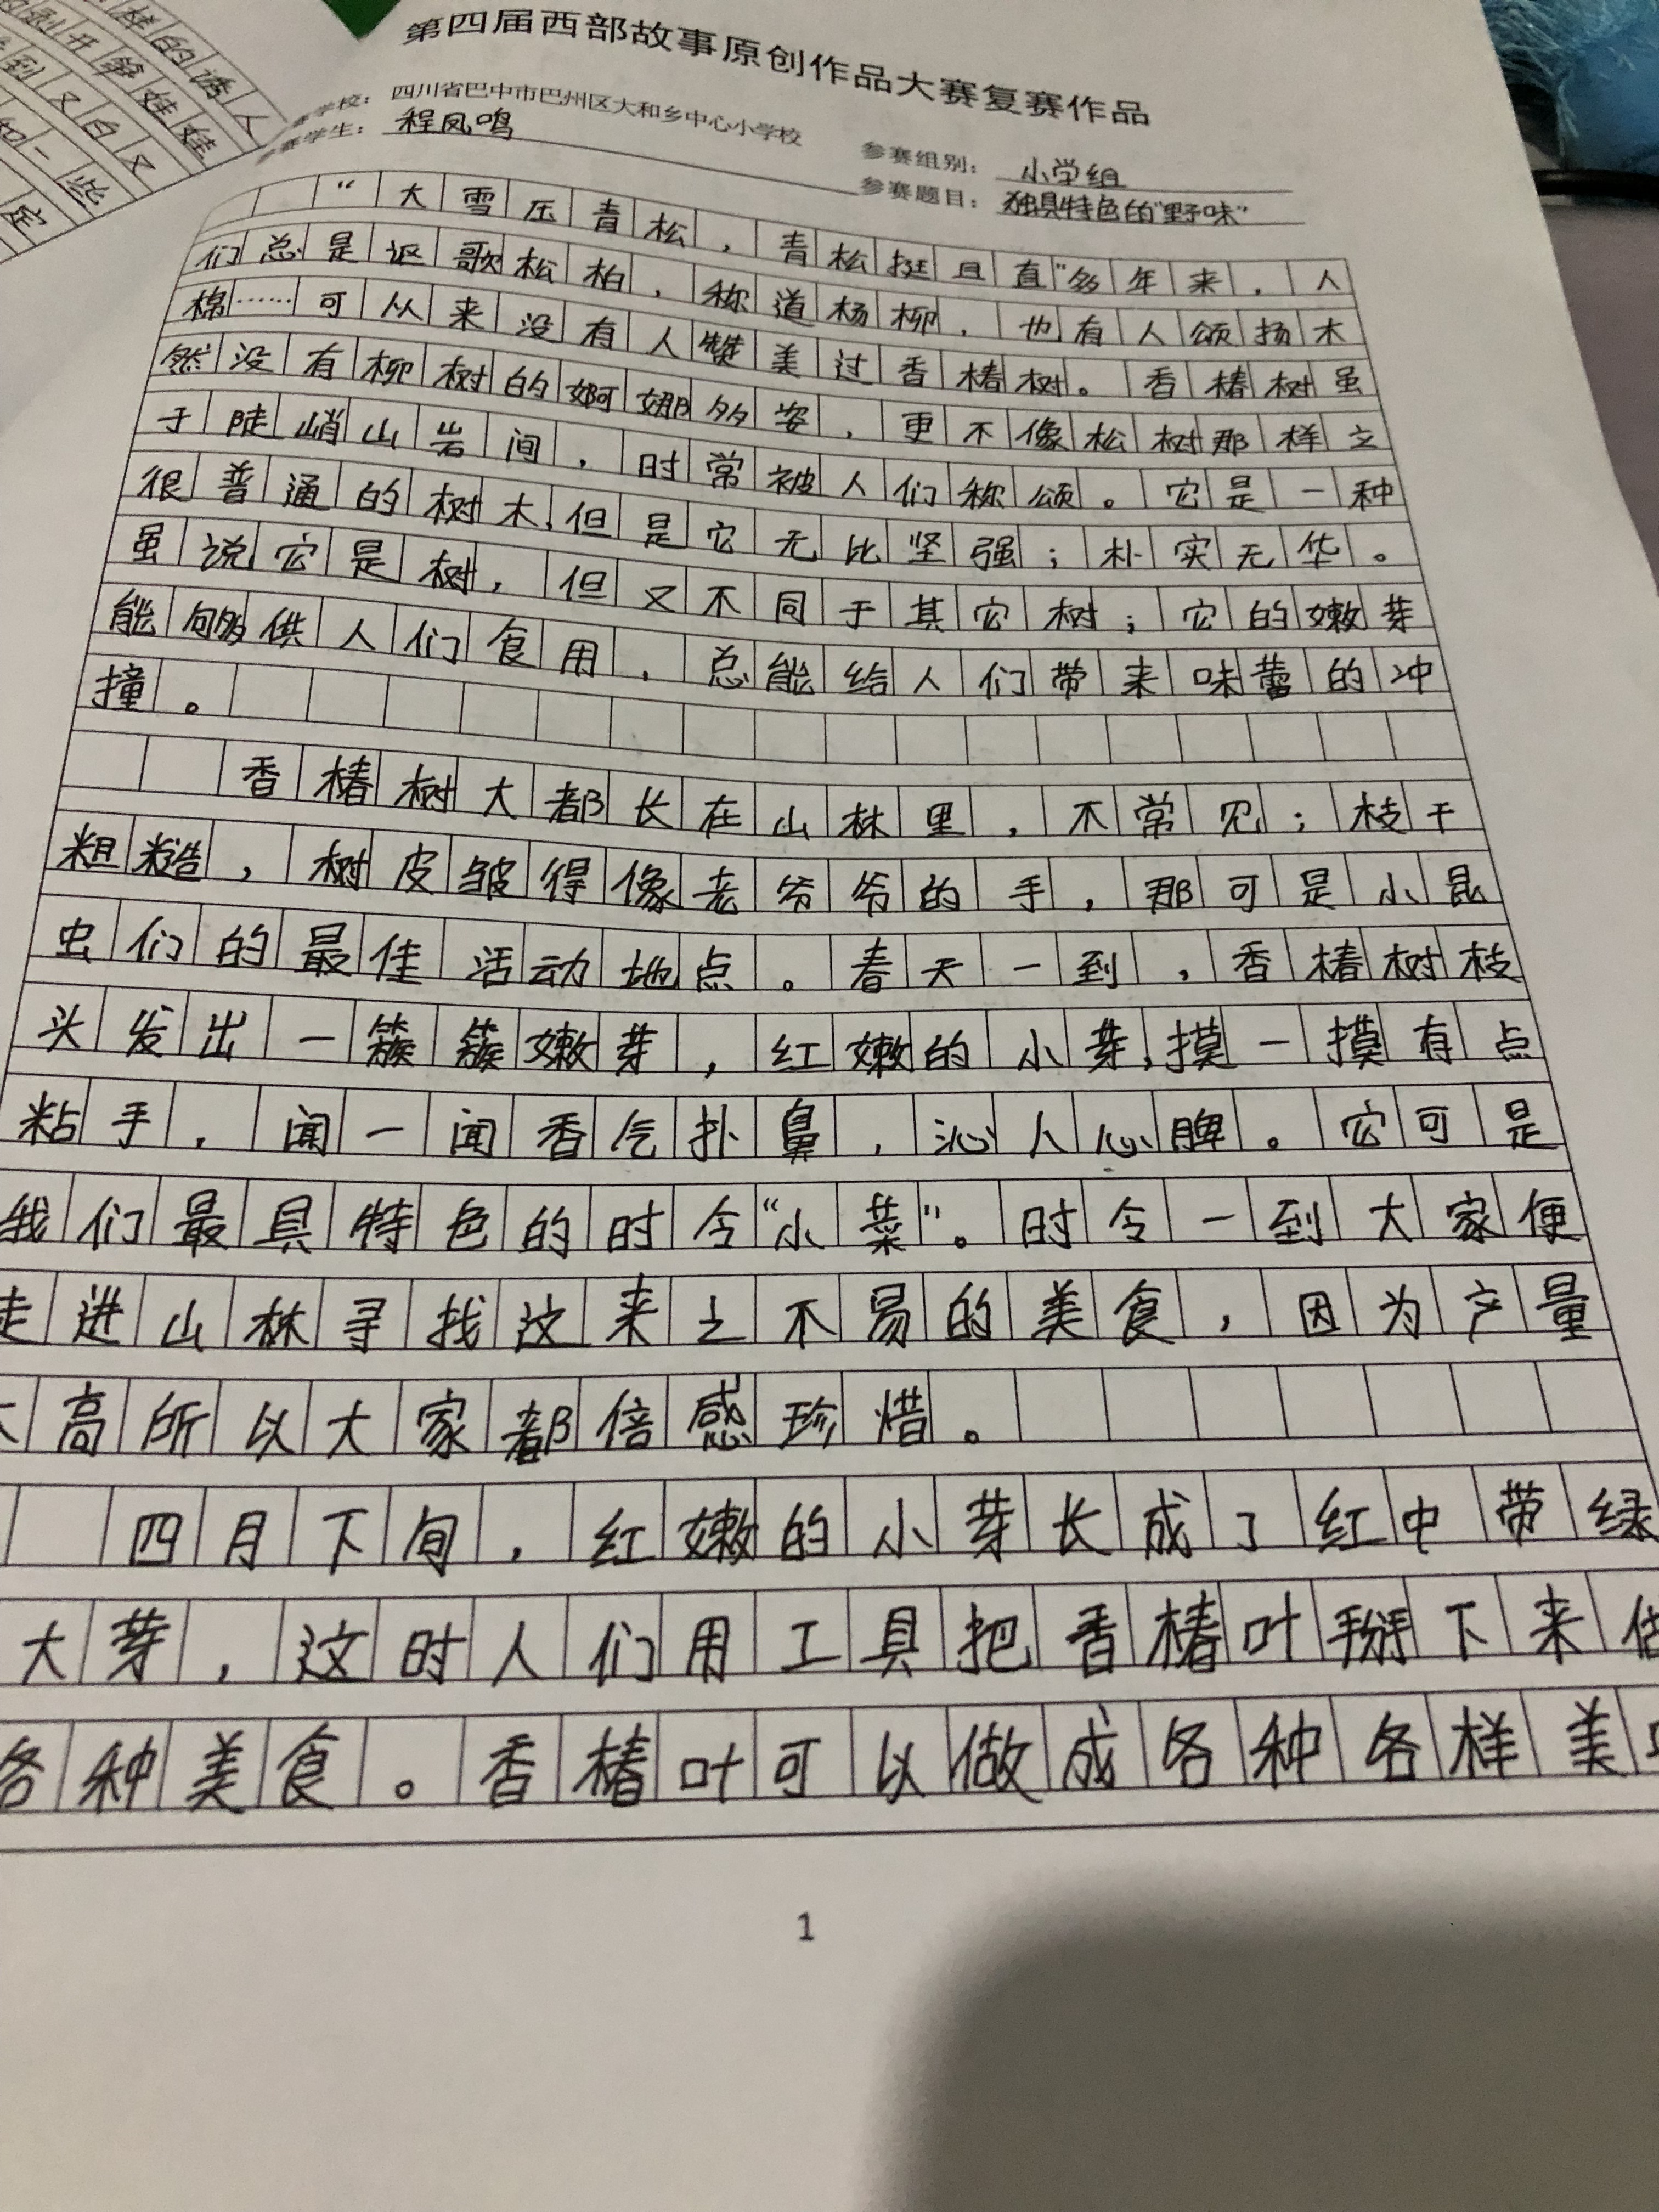 第四届西部故事原创作品大赛复赛作品
赛学校：四川省巴中市巴州区大和乡中心小学校
参赛学生：程凤鸣
参赛组别：小学组
参赛题目：独具特色的“野味”
“大雪压青松，青松挺且直”多年来，人
们总是讴歌松柏，称道杨柳，也有人颂扬木
棉……可从来没有人赞美过香椿树。香椿树虽
然没有柳树的婀娜多姿，更不像松树那样立
于陡峭山岩间，时常被人们称颂。它是一种
很普通的树木，但是它无比坚强；朴实无华。
虽说它是树，但又不同于其它树；它的嫩芽
能够供人们食用，总能给人们带来味蕾的冲
撞。
香椿树大都长在山林里，不常见；枝干
粗糙，树皮皱得像老爷爷的手，那可是小昆
虫们的最佳活动地点。春天一到，香椿树枝
头发出一簇簇嫩芽，红嫩的小芽，摸一摸有点
粘手，闻一闻香气扑鼻，沁人心脾。它可是
我们最具特色的时令“小菜”。时令一到大家便
走进山林寻找这来之不易的美食，因为产量
不高所以大家都倍感珍惜。
四月下旬，红嫩的小芽长成了红中带绿
大芽，这时人们用工具把香椿叶掰下来做
各种美食。香椿叶可以做成各种各样美
1
样的诱人
剥开笋娃娃
到又白又
和一些
定